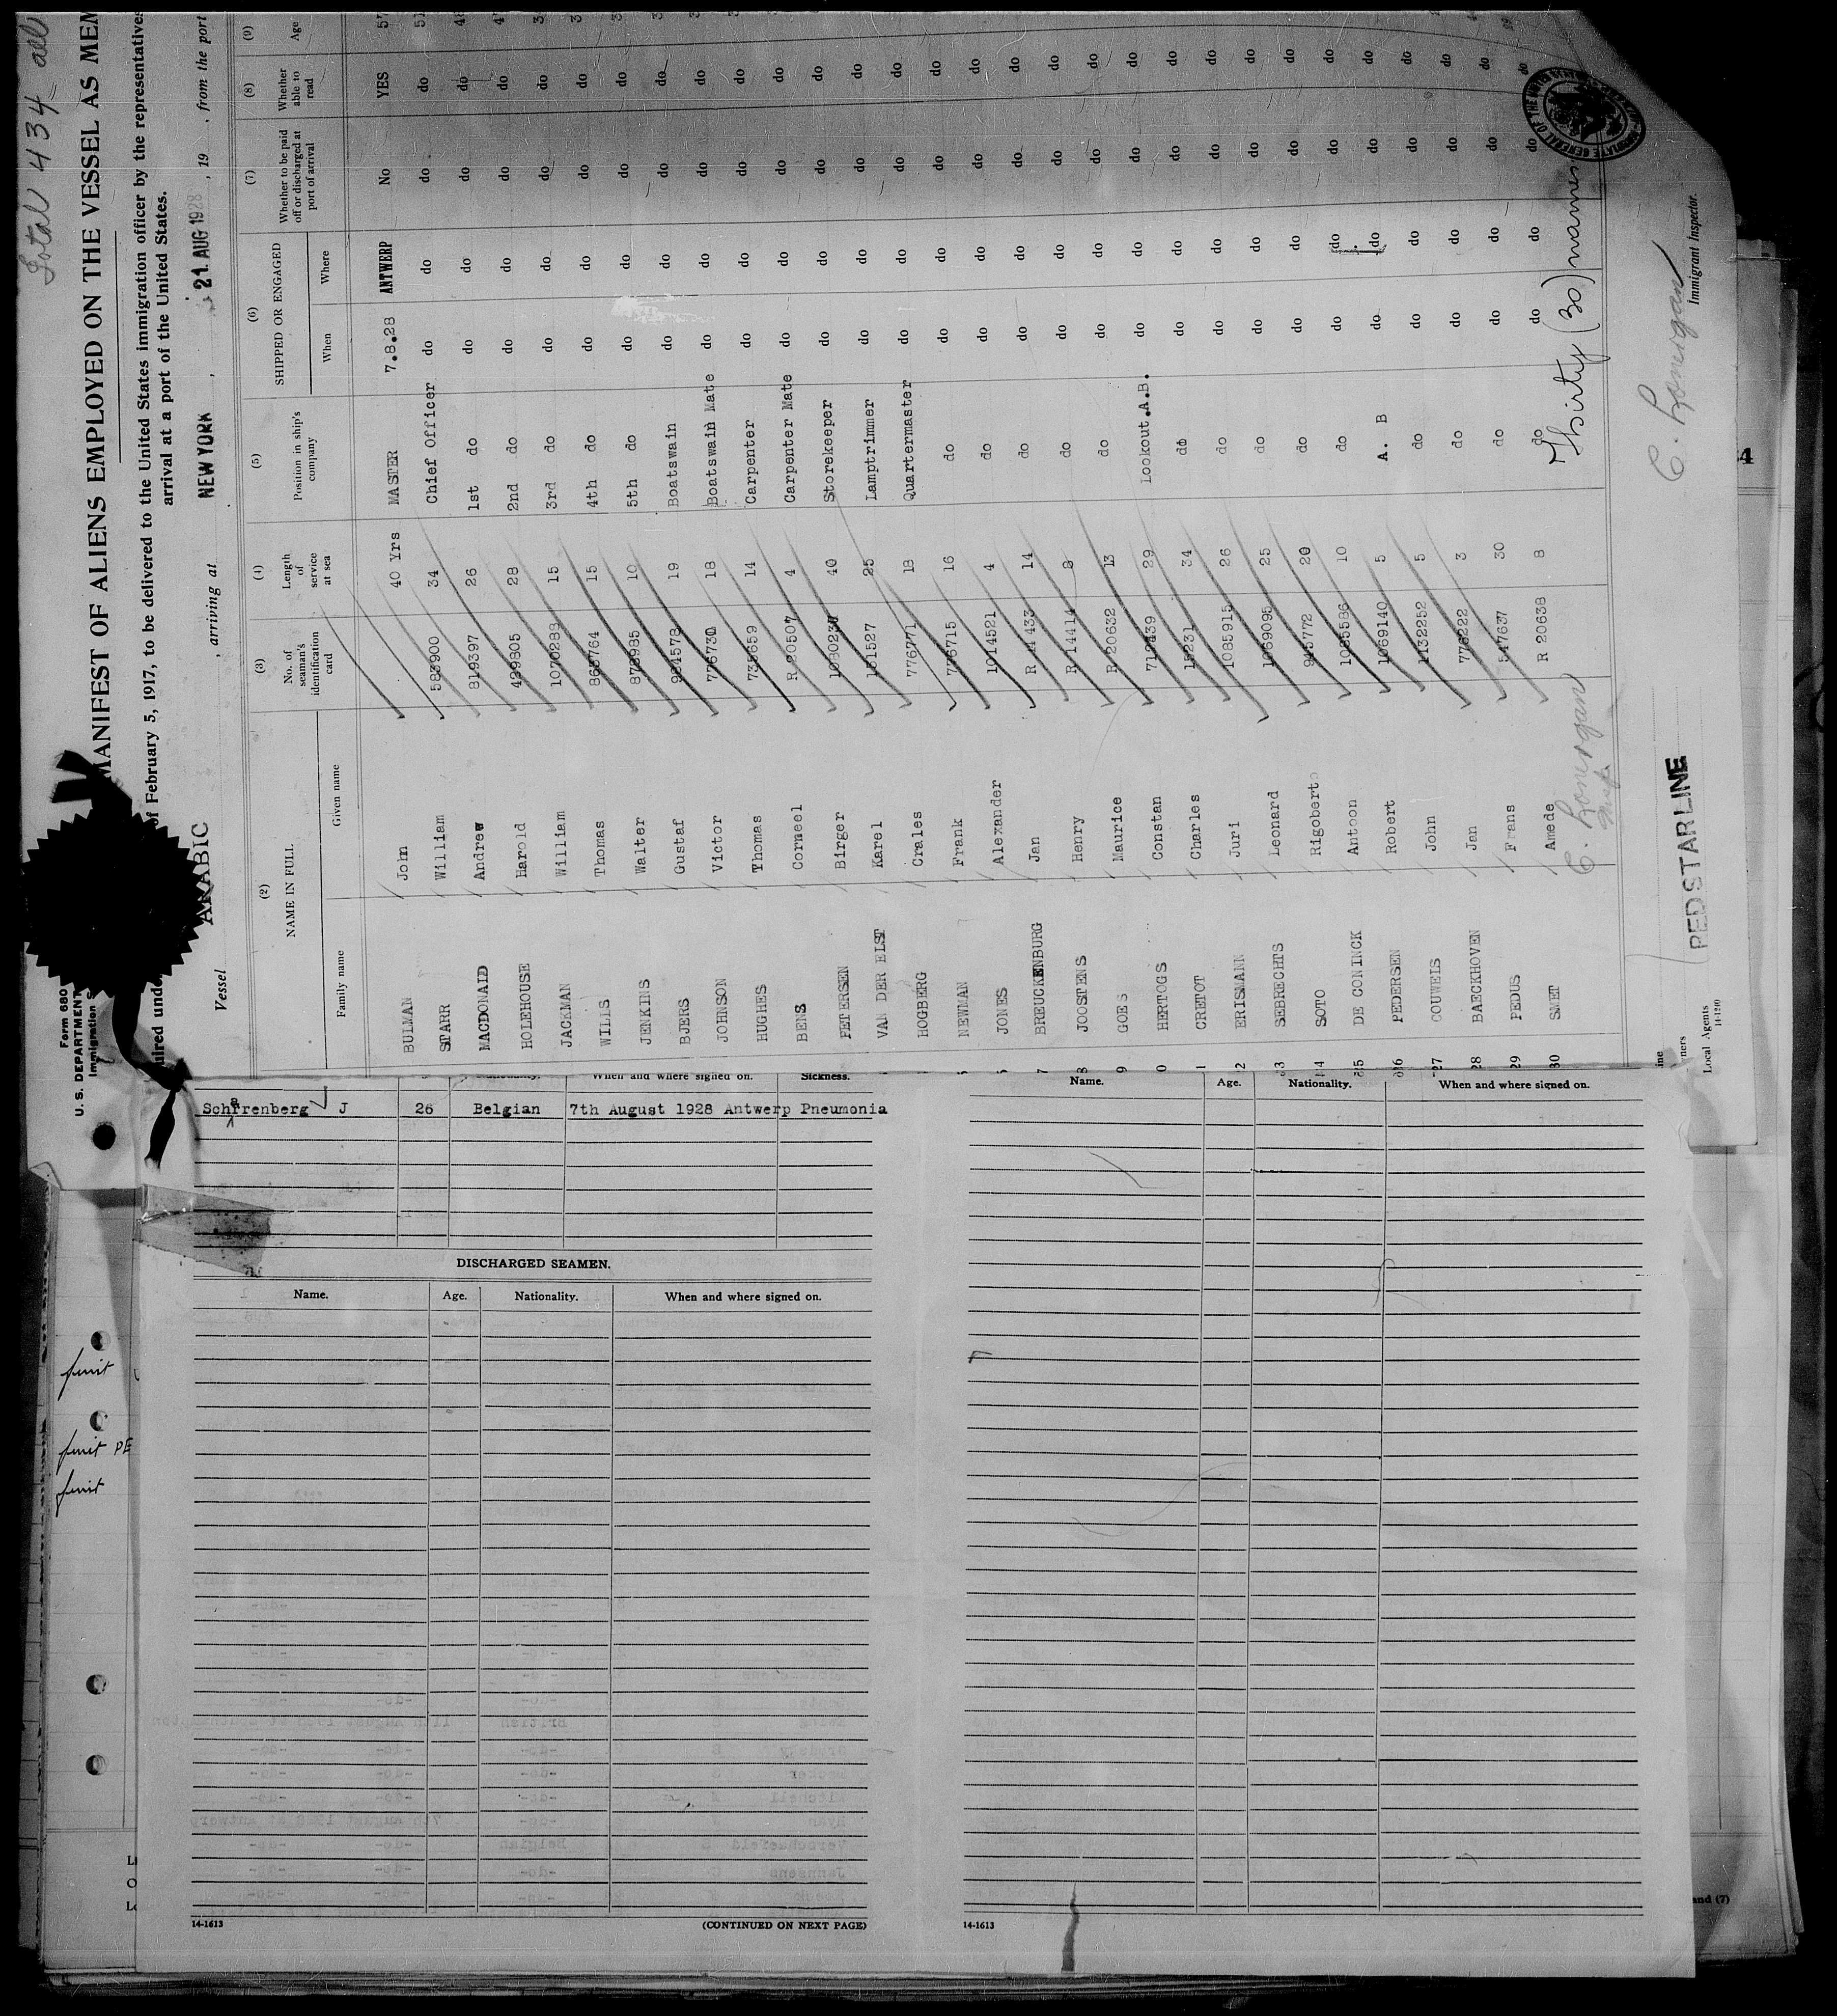 Total 434 all
MANIFEST OF ALIENS EMPLOYED ON THE VESSEL AS MEM
of February 5, 1917, to be delivered to the United States immigration officer by the representatives
arrival at a port of the United States.
Vessel ARABIC , arriving at NEW YORK , 21 AUG 1928 , 19 , from the port
Form 680
U. S. DEPARTMENT
Immigration S
(2) (3) (4) (5) (6) (7) (8) (9)
NAME IN FULL No. of seaman's identification card Length of service at sea Position in ship's company SHIPPED OR ENGAGED Whether to be paid off or discharged at port of arrival Whether able to read Age
Family name Given name When Where
BULMAN John 40 Yrs MASTER 7.8.28 ANTWERP No YES 57
STARR William 583900 34 Chief Officer do do do do 51
MACDONALD Andrew 819397 26 1st do do do do do
HOLEHOUSE Harold 439805 28 2nd do do do do do
JACKMAN William 1070289 15 3rd do do do do do
WILLS Thomas 868764 15 4th do do do do do
JENKINS Walter 878985 10 5th do do do do do
BJERS Gustaf 984578 19 Boatswain do do do do
JOHNSON Victor 776730 18 Boatswain Mate do do do do
HUGHES Thomas 735659 14 Carpenter do do do do
BENS Corneel R 20507 4 Carpenter Mate do do do do
PETERSEN Birger 40 Storekeeper do do do do
VAN DER ELST Karel 151527 25 Lamptrimmer do do do do
HOGBERG Crales 776771 18 Quartermaster do do do do
NEWMAN Frank 776715 16 do do do do do
JONES Alexander 1014521 4 do do do do do
BREUCKENBURG Jan R 14433 14 do do do do do
8 JOOSTENS Henry R 14414 8 do do do do do
9 GOES Maurice R 20632 13 do do do do do
0 HERTOGS Constan 712839 29 Lookout.A.B. do do do do
1 CRETOT Charles 15231 34 do do do do do
2 ERISMANN Juri 1085915 26 do do do do do
3 SEBRECHTS Leonard 1069095 25 do do do do do
4 SOTO Rigoberto 945772 20 do do do do do
25 DE CONINCK Antoon 1085586 10 do do do do do
26 PEDERSEN Robert 1069140 5 A. B do do do do
27 COUWELS John 1132252 5 do do do do do
28 BAECKHOVEN Jan 776222 3 do do do do do
29 PEDUS Frans 547637 30 do do do do do
30 SMET Amede R 20638 8 do do do do do
Thirty (30) names
C. Lonergan
Insp.
C. Lonergan
Immigrant Inspector.
RED STAR LINE
Local Agents
14-1240
When and where signed on. Sickness.
Scharrenberg J 26 Belgian 7th August 1928 Antwerp Pneumonia
DISCHARGED SEAMEN.
Name. Age. Nationality. When and where signed on.
14-1613 (CONTINUED ON NEXT PAGE)
Name. Age. Nationality. When and where signed on.
14-1613
and (7)